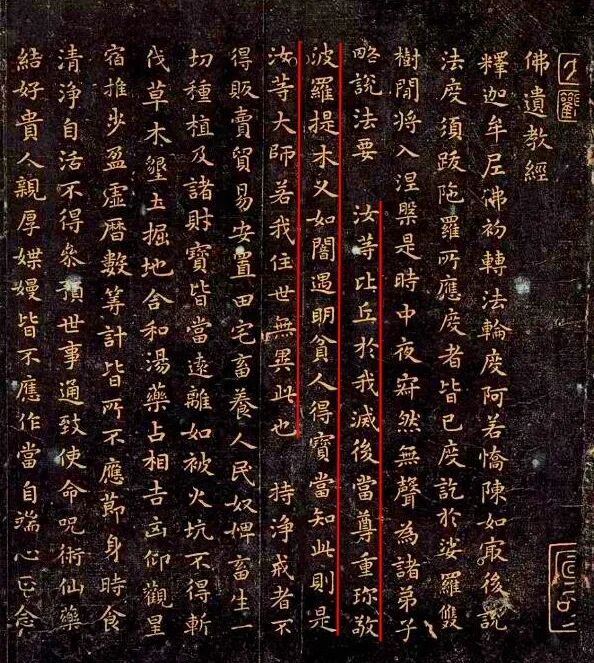 佛遺教經
釋迦牟尼佛初轉法輪度阿若憍陳如㝡後說
法度須跋陀羅所應度者皆已度訖於娑羅雙
樹間將入涅槃是時中夜寂然無聲為諸弟子
略說法要 汝等比丘於我滅後當尊重珍敬
波羅提木叉如闇遇明貧人得寶當知此則是
汝等大師若我住世無異此也 持淨戒者不
得販賣貿易安置田宅畜養人民奴婢畜生一
切種植及諸財寶皆當遠離如被火坑不得斬
伐草木墾土掘地合和湯藥占相吉凶仰觀星
宿推步盈虛曆數筭計皆所不應節身時食
清淨自活不得參預世事通致使命呪術仙藥
結好貴人親厚媟嫚皆不應作當自端心正念